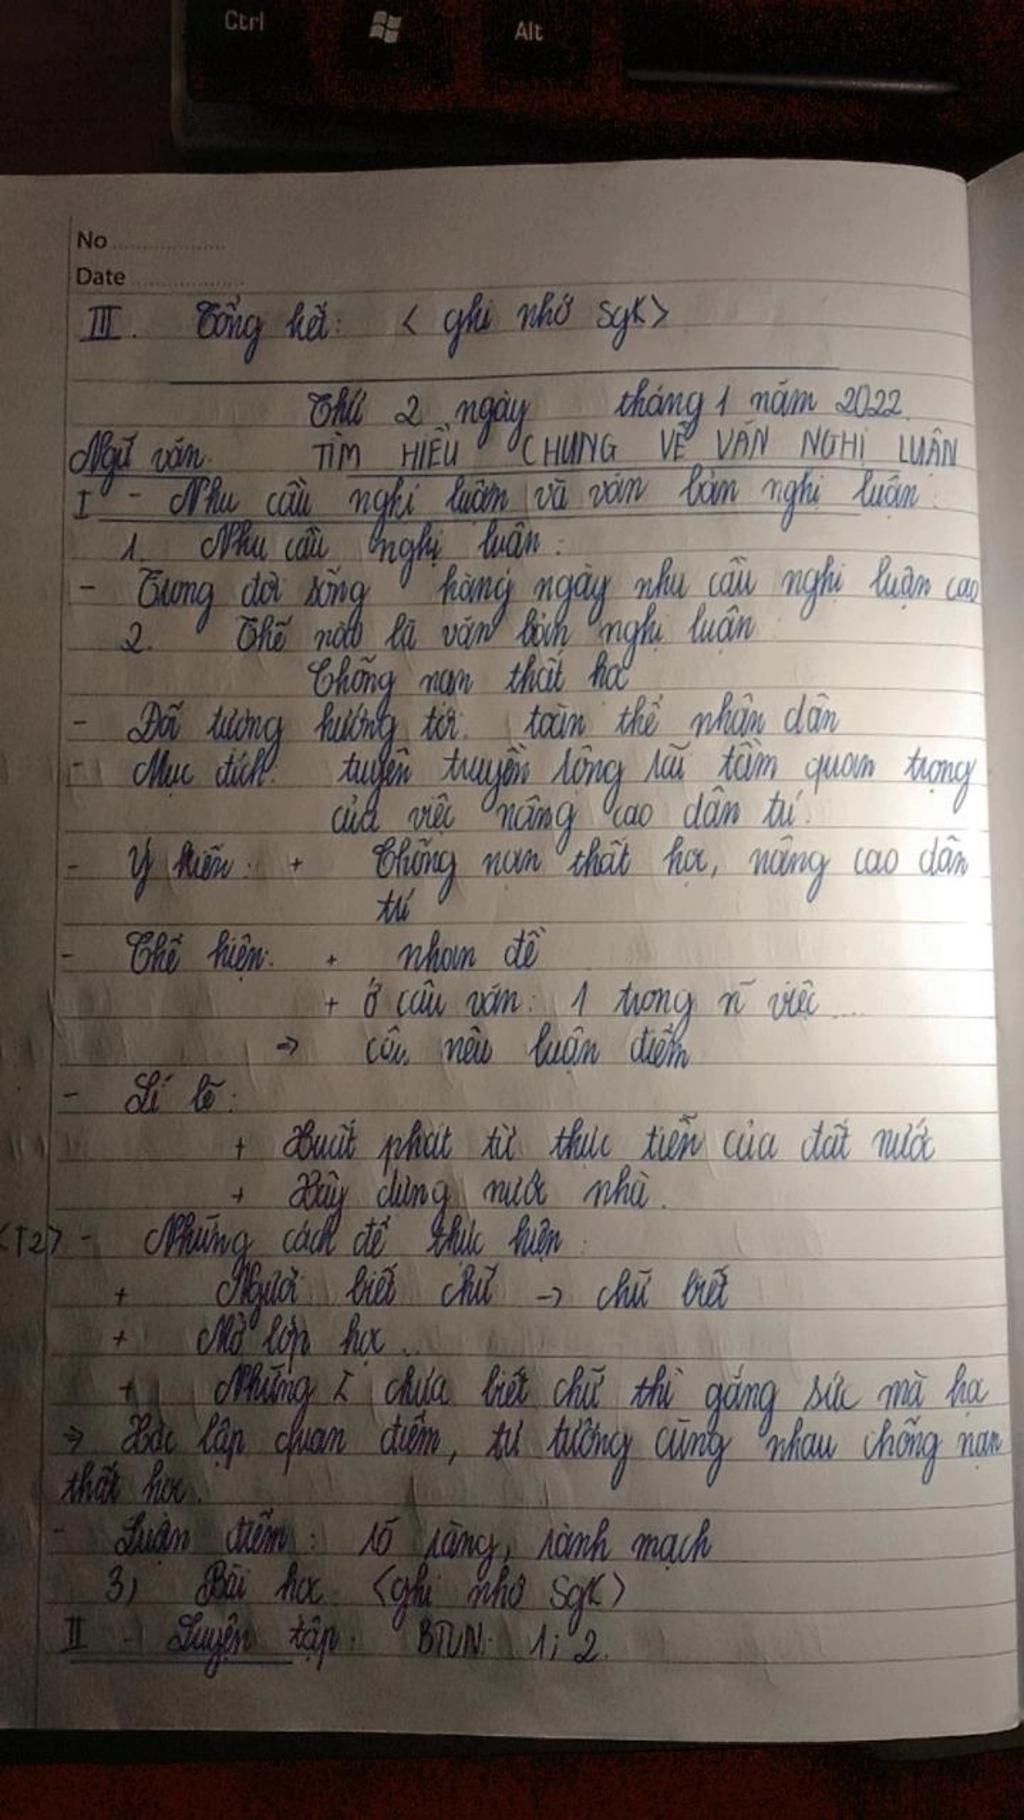 Ctrl
Alt
No
Date
III. Tổng kết: < ghi nhớ SgK>
Thứ 2 ngày tháng 1 năm 2022.
Ngữ văn. TÌM HIỂU CHUNG VỀ VĂN NGHỊ LUẬN
I - Nhu cầu nghị luận và văn bản nghị luận:
1. Nhu cầu nghị luận:
- Trong đời sống hàng ngày nhu cầu nghị luận cao
2. Thế nào là văn bản nghị luận
Chống nạn thất học
- Đối tượng hướng tới: toàn thể nhân dân
- Mục đích: tuyên truyền rộng rãi tầm quan trọng
của việc nâng cao dân trí.
- Ý kiến: + Chống nạn thất học, nâng cao dân
trí
- Thể hiện: + nhan đề
+ ở câu văn: 1 trong n~ việc ...
=> câu nêu luận điểm
- Lí lẽ:
+ Xuất phát từ thực tiễn của đất nước
+ Xây dựng nước nhà.
<T2> - Những cách để thực hiện:
+ Người biết chữ -> chữ biết
+ Mở lớp học ...
+ Những I chưa biết chữ thì gắng sức mà học
=> Xác lập quan điểm, tư tưởng cùng nhau chống nạn
thất học.
- Luận điểm: rõ ràng, rành mạch
3) Bài học: <ghi nhớ SgK>
II - Luyện tập: BTVN: 1; 2.